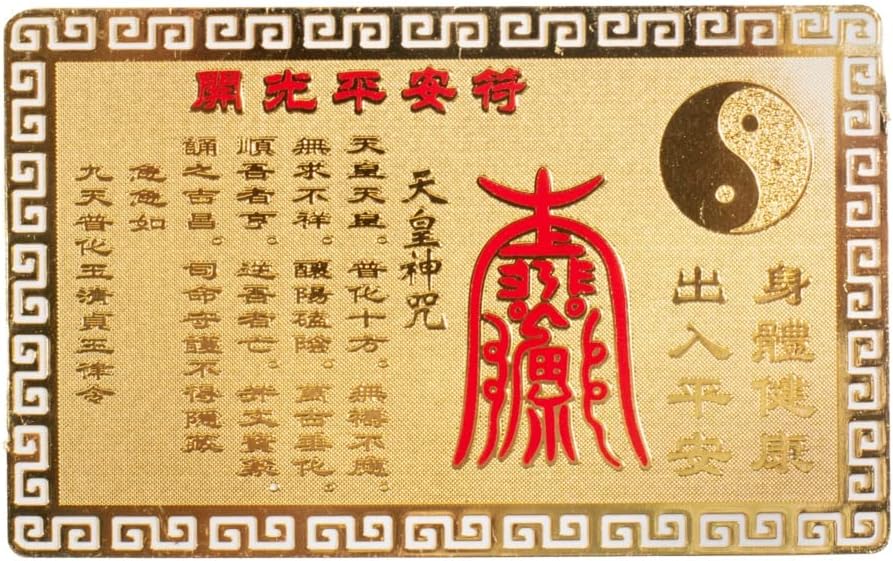 開光平安符
身體健康
出入平安
天皇神咒
天皇天皇。普化十方。無禱不應。
無求不祥。釀陽磕陰。萬古垂化。
順吾者亨。逆吾者亡。文寶篆。
誦之吉昌。司命守護不得隱藏
急急如
九天普化玉清貞王律令